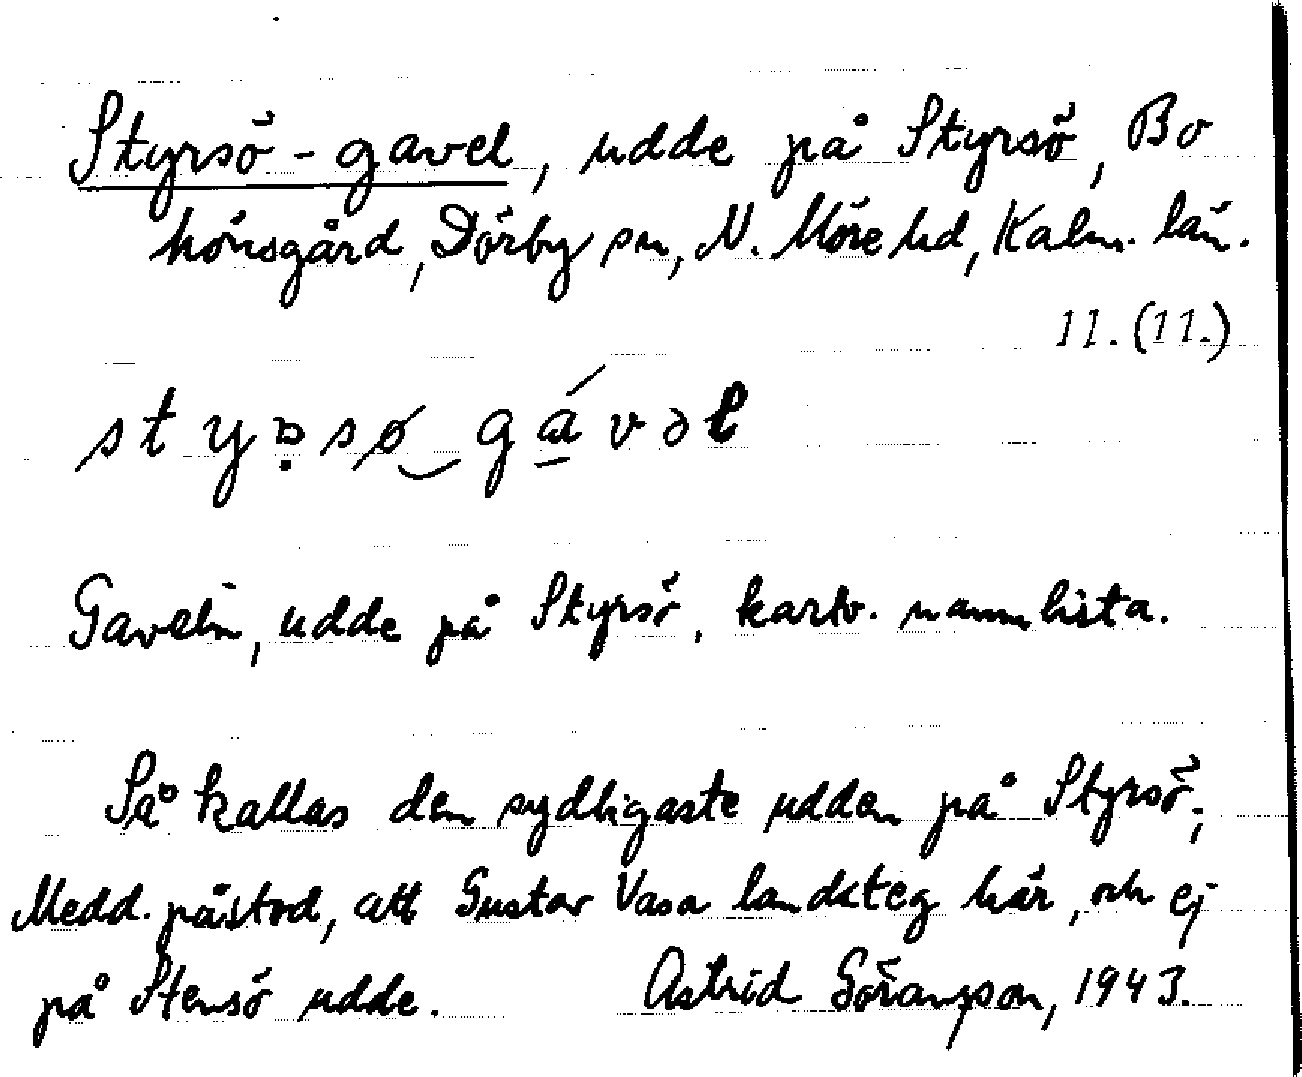 Styrsö-gavel, udde på Styrsö, Bo
hörsgård, Dörby sn, N. Möre hd, Kalm. län.
11. (11.)
Gaveln, udde på Styrsö, kartv. namnlista.
Så kallas den sydligaste udden på Styrsö;
Medd. påstod, att Gustav Vasa landsteg här, och ej
på Stensö udde. Astrid Göransson, 1943.